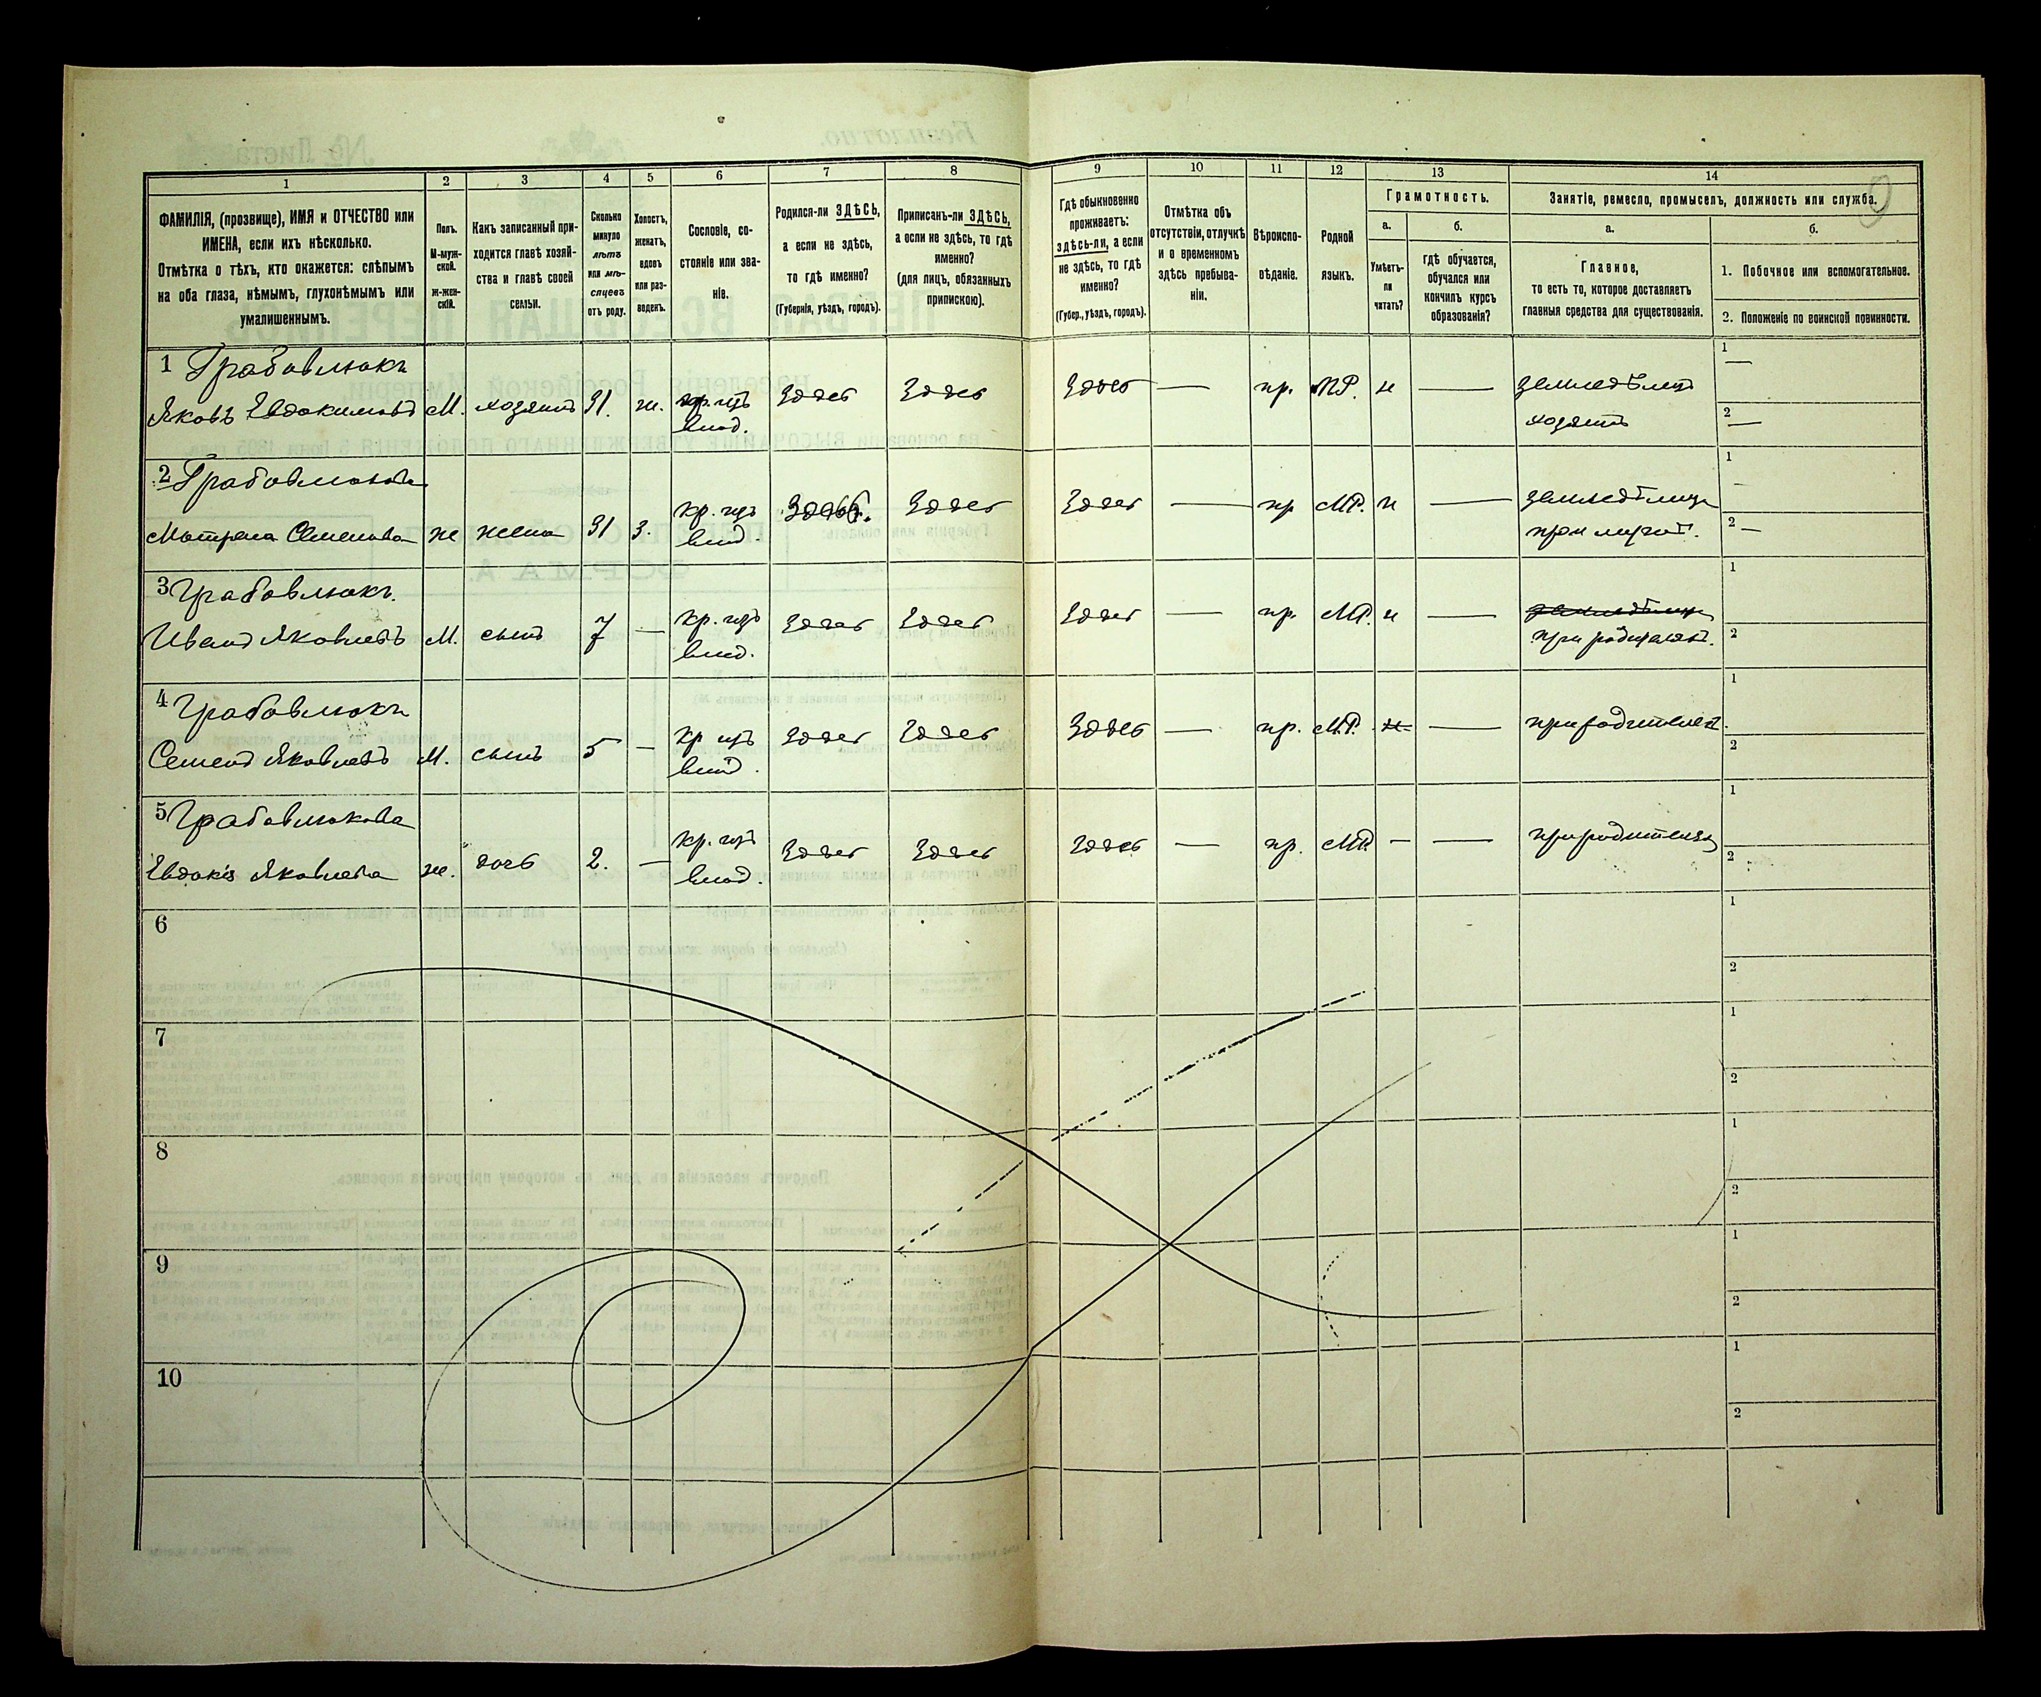 1 2 3 4 5 6 7 8 9 10 11 12 13 14
ФАМИЛІЯ, (прозвище), ИМЯ и ОТЧЕСТВО или
ИМЕНА, если ихъ нѣсколько.
Отмѣтка о тѣхъ, кто окажется: слѣпымъ
на оба глаза, нѣмымъ, глухонѣмымъ или
умалишеннымъ.
Полъ.
М-муж-
ской.
ж-жен-
скій.
Какъ записанный при-
ходится главѣ хозяй-
ства и главѣ своей
семьи.
Сколько
минуло
лѣтъ
или мѣ-
сяцевъ
отъ роду.
Холостъ,
женатъ,
вдовъ
или раз-
веденъ.
Сословіе, со-
стояніе или зва-
ніе.
Родился-ли ЗДѢСЬ,
а если не здѣсь,
то гдѣ именно?
(Губернія, уѣздъ, городъ).
Приписанъ-ли ЗДѢСЬ,
а если не здѣсь, то гдѣ
именно?
(для лицъ, обязанныхъ
припискою).
Гдѣ обыкновенно
проживаетъ:
здѣсь-ли, а если
не здѣсь, то гдѣ
именно?
(Губер., уѣздъ, городъ).
Отмѣтка объ
отсутствіи, отлучкѣ
и о временномъ
здѣсь пребыва-
ніи.
Вѣроиспо-
вѣданіе.
Родной
языкъ.
Грамотность.
а.
Умѣетъ-
ли
читать?
б.
гдѣ обучается,
обучался или
кончилъ курсъ
образованія?
Занятіе, ремесло, промыселъ, должность или служба.
9
а.
Главное,
то есть то, которое доставляетъ
главныя средства для существованія.
б.
1. Побочное или вспомогательное.
2. Положеніе по воинской повинности.
1 Грабовлюкъ
Яковъ Евдокимовъ М. хозяинъ 31. ж. кр. изъ Здѣсь Здѣсь Здѣсь — пр. МР. н — земледѣлецъ 1 —
влад. хозяинъ 2 —
2 Грабовлюкова
Матрена Семенова ж жена 31 з. кр. изъ Здѣсь. Здѣсь Здѣсь — пр МР. н — земледѣлица 1
влад. при мужѣ. 2 —
3 Грабовлюкъ.
Иванъ Яковлевъ М. сынъ 7 — кр. изъ Здѣсь Здѣсь Здѣсь — пр. МР. н — земледѣлица 1
влад. при родителяхъ. 2
4 Грабовлюкъ
Семенъ Яковлевъ М. сынъ 5 — кр изъ Здѣсь Здѣсь Здѣсь — пр. МР. н — при родителяхъ. 1
влад. 2
5 Грабовлюкова
Евдокія Яковлева ж. дочь 2. — кр. изъ Здѣсь Здѣсь Здѣсь — пр. МР — — при родителяхъ 1
влад. 2
6 1
2
7 1
2
8 1
2
9 1
2
10 1
2